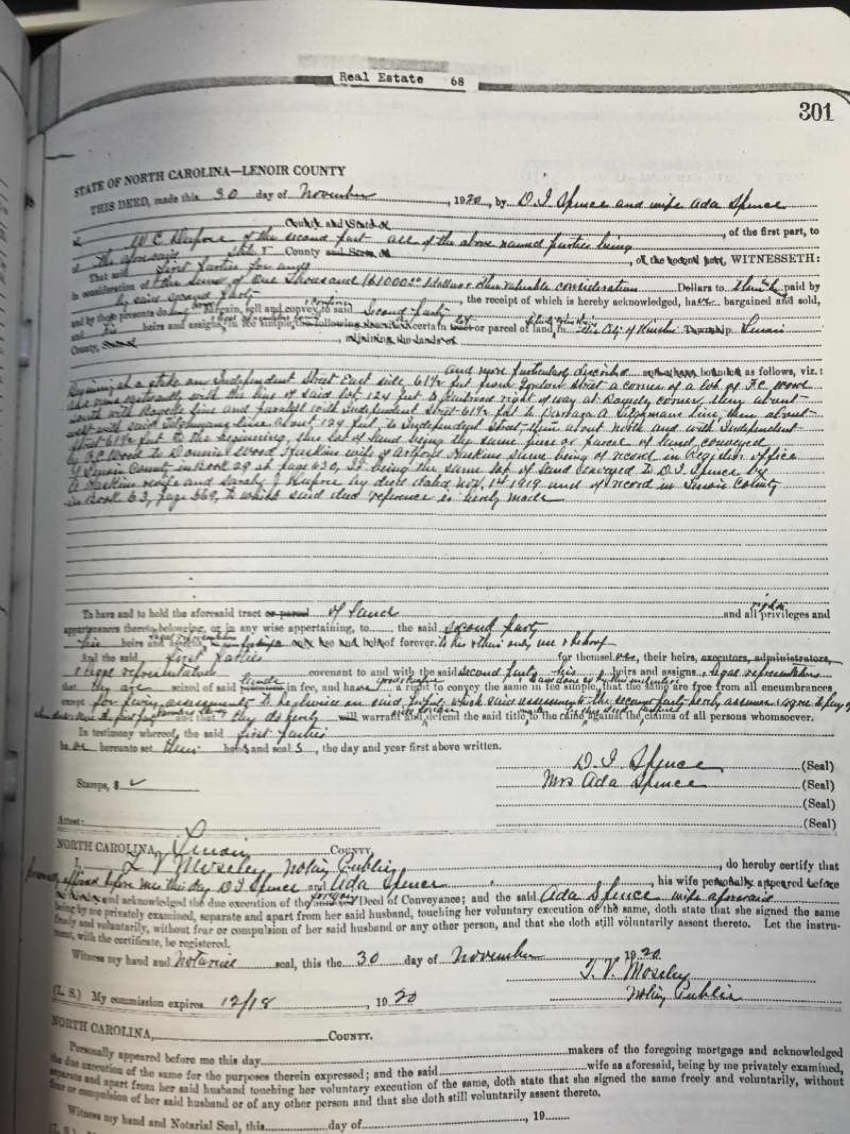 Real Estate 68
301
STATE OF NORTH CAROLINA—LENOIR COUNTY
THIS DEED, made this 30 day of November, 1920, by D. I. Spence and wife Ada Spence
of the first part, to
of the second part all of the above named parties being
of the aforesaid State & County, WITNESSETH:
That said first parties for and
in consideration of the sum of One Thousand ($1000.00) dollars & other valuable consideration Dollars to them paid by
said second party, the receipt of which is hereby acknowledged, have bargained and sold,
and by these presents do bargain, sell and convey to said Second party
and his heirs and assigns, in fee simple, the following certain lot or parcel of land in the City of Kinston Township Lenoir
County,
and more particularly described as follows, viz.:
Beginning at a stake on Independent Street East side 61½ feet from Gordon Street a corner of a lot of F.C. Wood
and runs eastwardly with the line of said lot 124 feet to railroad right of way at corner, then about
South with line and parallel with Independent Street 61½ feet to line, then about
west with said line about 124 feet to Independent Street then about north and with Independent
Street 61½ feet to the beginning, this lot of land being the same piece or parcel of land conveyed
by F.C. Wood to Wood Haskins wife of Haskins same being of record in Register office
of Lenoir County in Book 29 at page 620, & being the same lot of land conveyed to D.I. Spence by
Haskins and Sarah J by deed dated Nov. 1st 1919 and of record in Lenoir County
in Book 63, page 569, to which said deed reference is hereby made
To have and to hold the aforesaid tract or parcel of Land and all privileges and
appurtenances thereto belonging, or in any wise appertaining, to the said second party
his heirs and assigns, forever. to his & their only use & behoof
And the said first parties for themselves, their heirs, executors, administrators,
& legal representatives covenant to and with the said second party his heirs and assigns legal representatives
that they are seized of said in fee, and have a right to convey the same in fee simple, that the same are free from all encumbrances
except for paving assessments which said assessments the second party hereby assumes & agrees to pay
and that they do hereby will warrant and defend the said title to the same against the claims of all persons whomsoever.
In testimony whereof, the said first parties
have hereunto set their hands and seals, the day and year first above written.
D. I. Spence (Seal)
Stamps, $
Mrs Ada Spence (Seal)
(Seal)
Attest:
(Seal)
NORTH CAROLINA, Lenoir COUNTY.
I, Moseley, Notary Public, do hereby certify that
personally appeared before me this day D I Spence and Ada Spence, his wife personally appeared before
and acknowledged the due execution of the foregoing Deed of Conveyance; and the said Ada Spence wife aforesaid
being by me privately examined, separate and apart from her said husband, touching her voluntary execution of the same, doth state that she signed the same
freely and voluntarily, without fear or compulsion of her said husband or any other person, and that she doth still voluntarily assent thereto. Let the instru-
ment, with the certificate, be registered.
Witness my hand and Notarial seal, this the 30 day of November 1920
Moseley
(L. S.) My commission expires 12/18, 1920
Notary Public
NORTH CAROLINA, COUNTY.
Personally appeared before me this day makers of the foregoing mortgage and acknowledged
the due execution of the same for the purposes therein expressed; and the said wife as aforesaid, being by me privately examined,
separate and apart from her said husband touching her voluntary execution of the same, doth state that she signed the same freely and voluntarily, without
fear or compulsion of her said husband or of any other person and that she doth still voluntarily assent thereto.
Witness my hand and Notarial Seal, this day of, 19